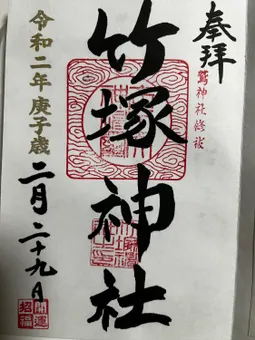 奉拝
鷲神社修祓
竹塚神社
令和二年庚子歳
二月二十九日
開運
招福